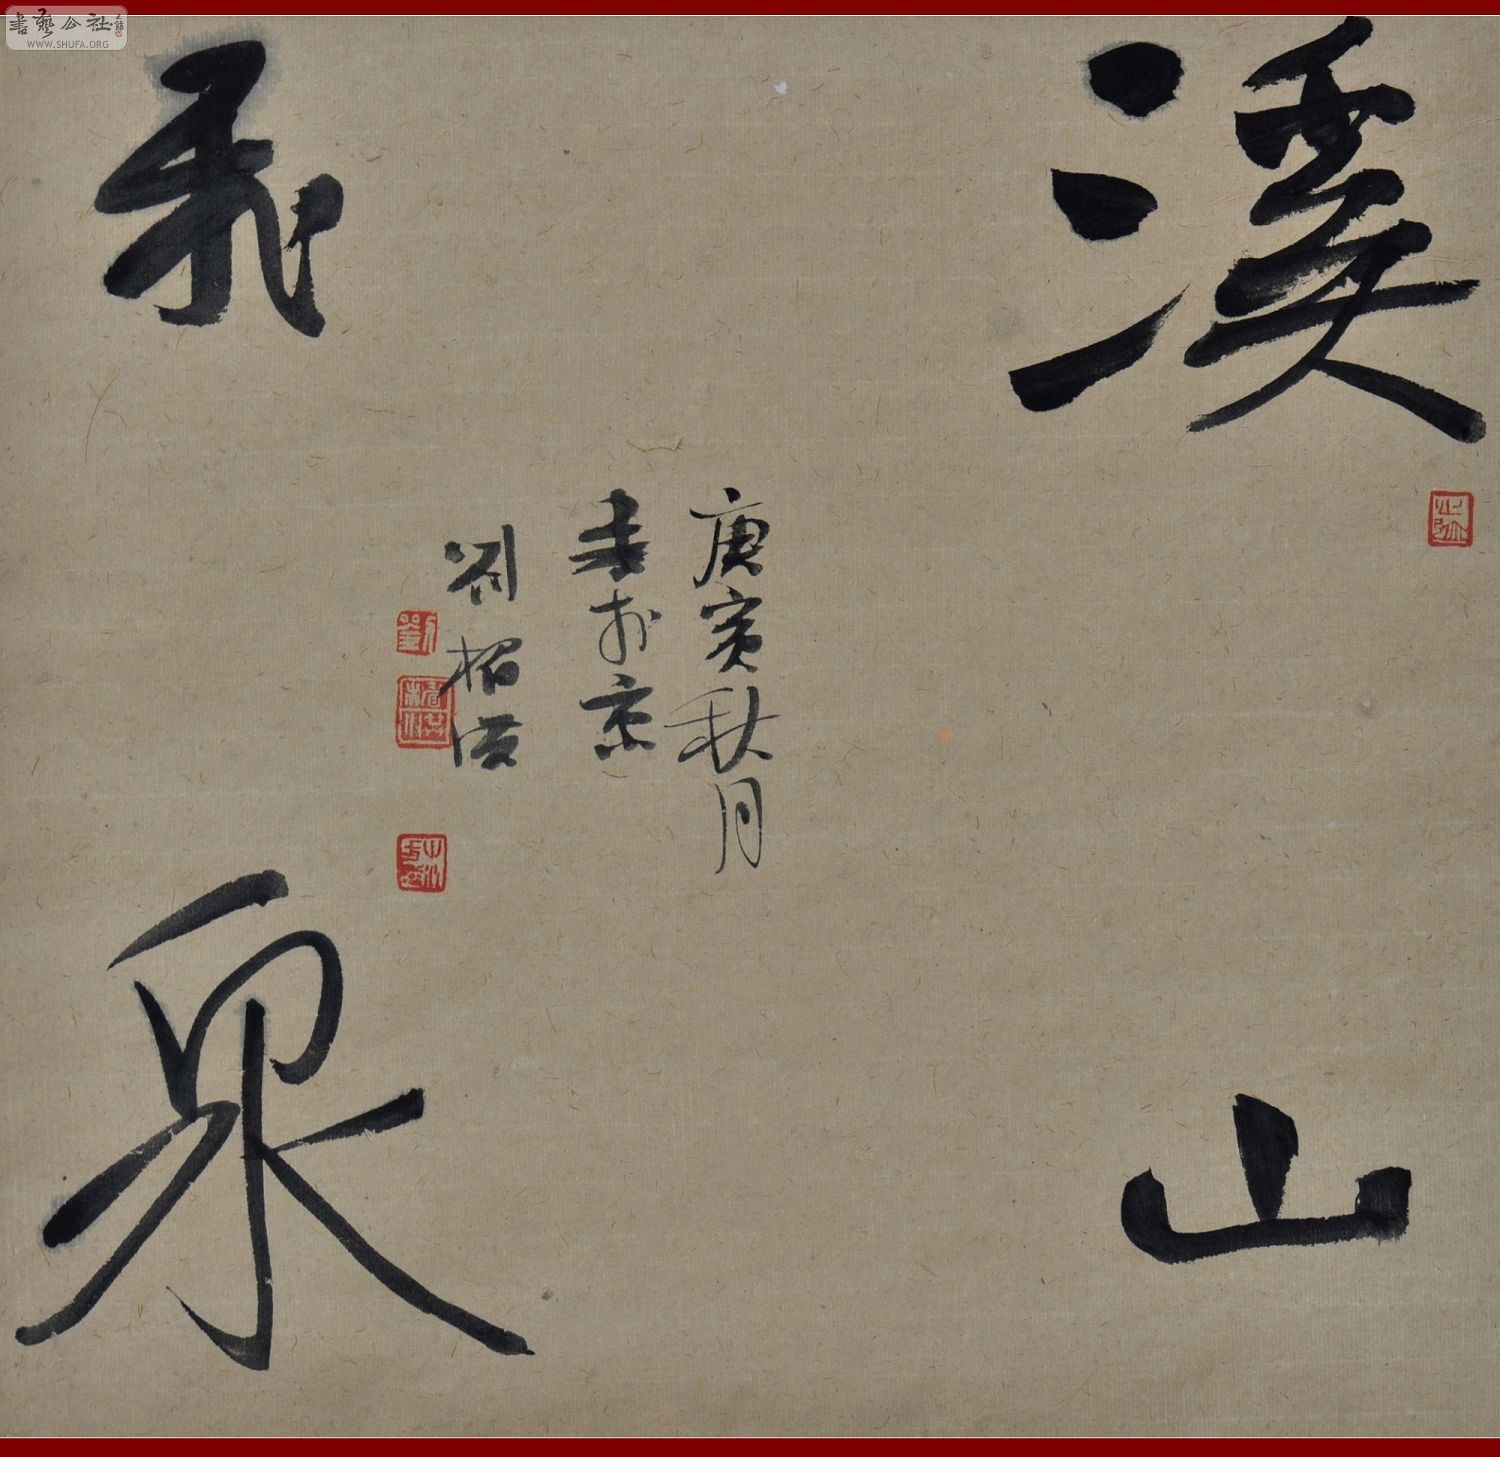 書藝公社
WWW.SHUFA.ORG
溪山
飛泉
庚寅秋月
書於京
劉